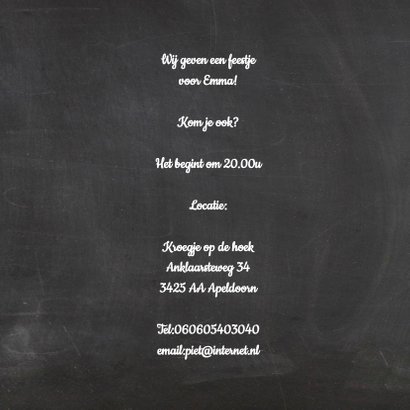 Wij geven een feestje
voor Emma!
Kom je ook?
Het begint om 20.00u
Locatie:
Kroegje op de hoek
Anklaarsteweg 34
3425 AA Apeldoorn
Tel:060605403040
email:piet@internet.nl